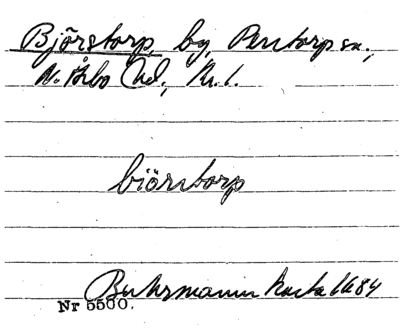 Björstorp, by, Perstorp sn.,
N. Åsbo hd., Kr. l.
biörstorp
Buhrmanns karta 1684
Nr 5500.